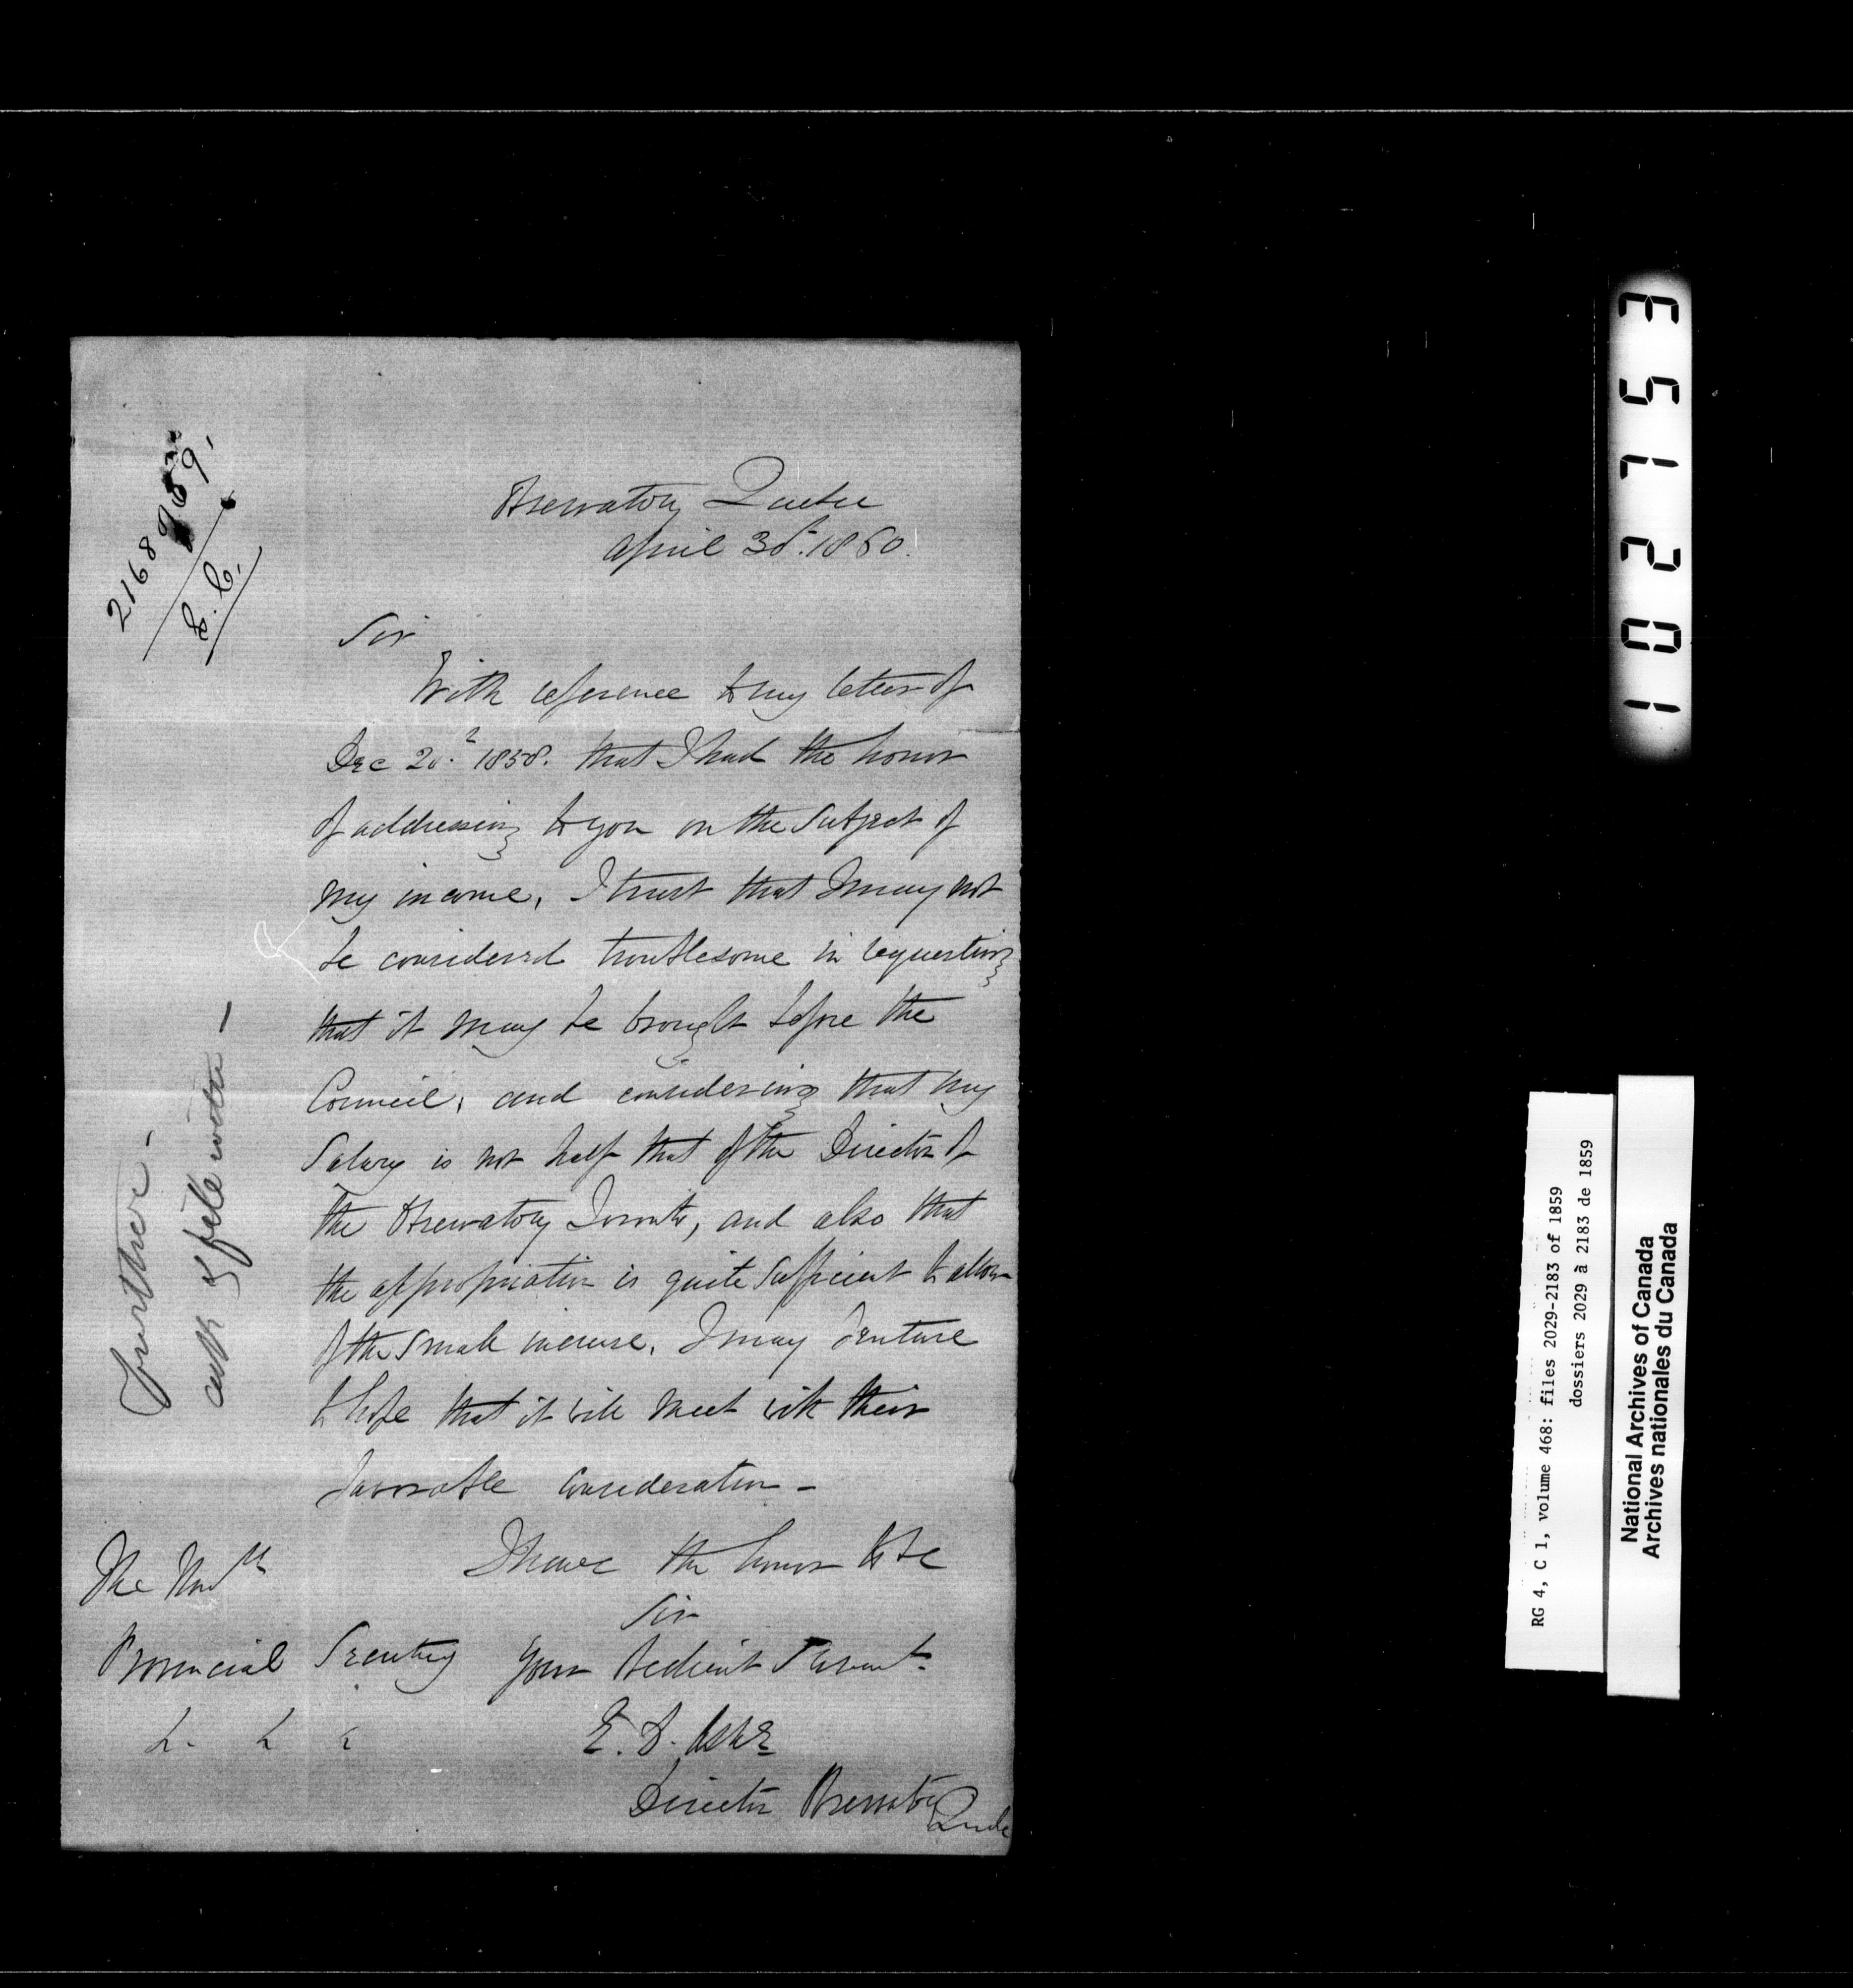 2168 of 59.
Observatory Quebec
April 30th. 1860.
Sir
With reference to my letter of
Dec 1858. that I had the honor
of addressing to you on the subject of
my income, I trust that I may not
be considered troublesome in requesting
that it may be brought before the
Council, and considering that my
Salary is not half that of the Director of
the Observatory Toronto, and also that
the appropriation is quite sufficient to allow
of the small increase, I may venture
to hope that it will meet with their
favorable consideration -
I have the honor to be
Sir
Your Obedient Servant
E. D. Ashe
Director Observatory Quebec
The Honble
Provincial Secretary
& & &
further -
ask of file with -
101 2153
RG 4, C 1, volume 468: files 2029-2183 of 1859
dossiers 2029 à 2183 de 1859
National Archives of Canada
Archives nationales du Canada